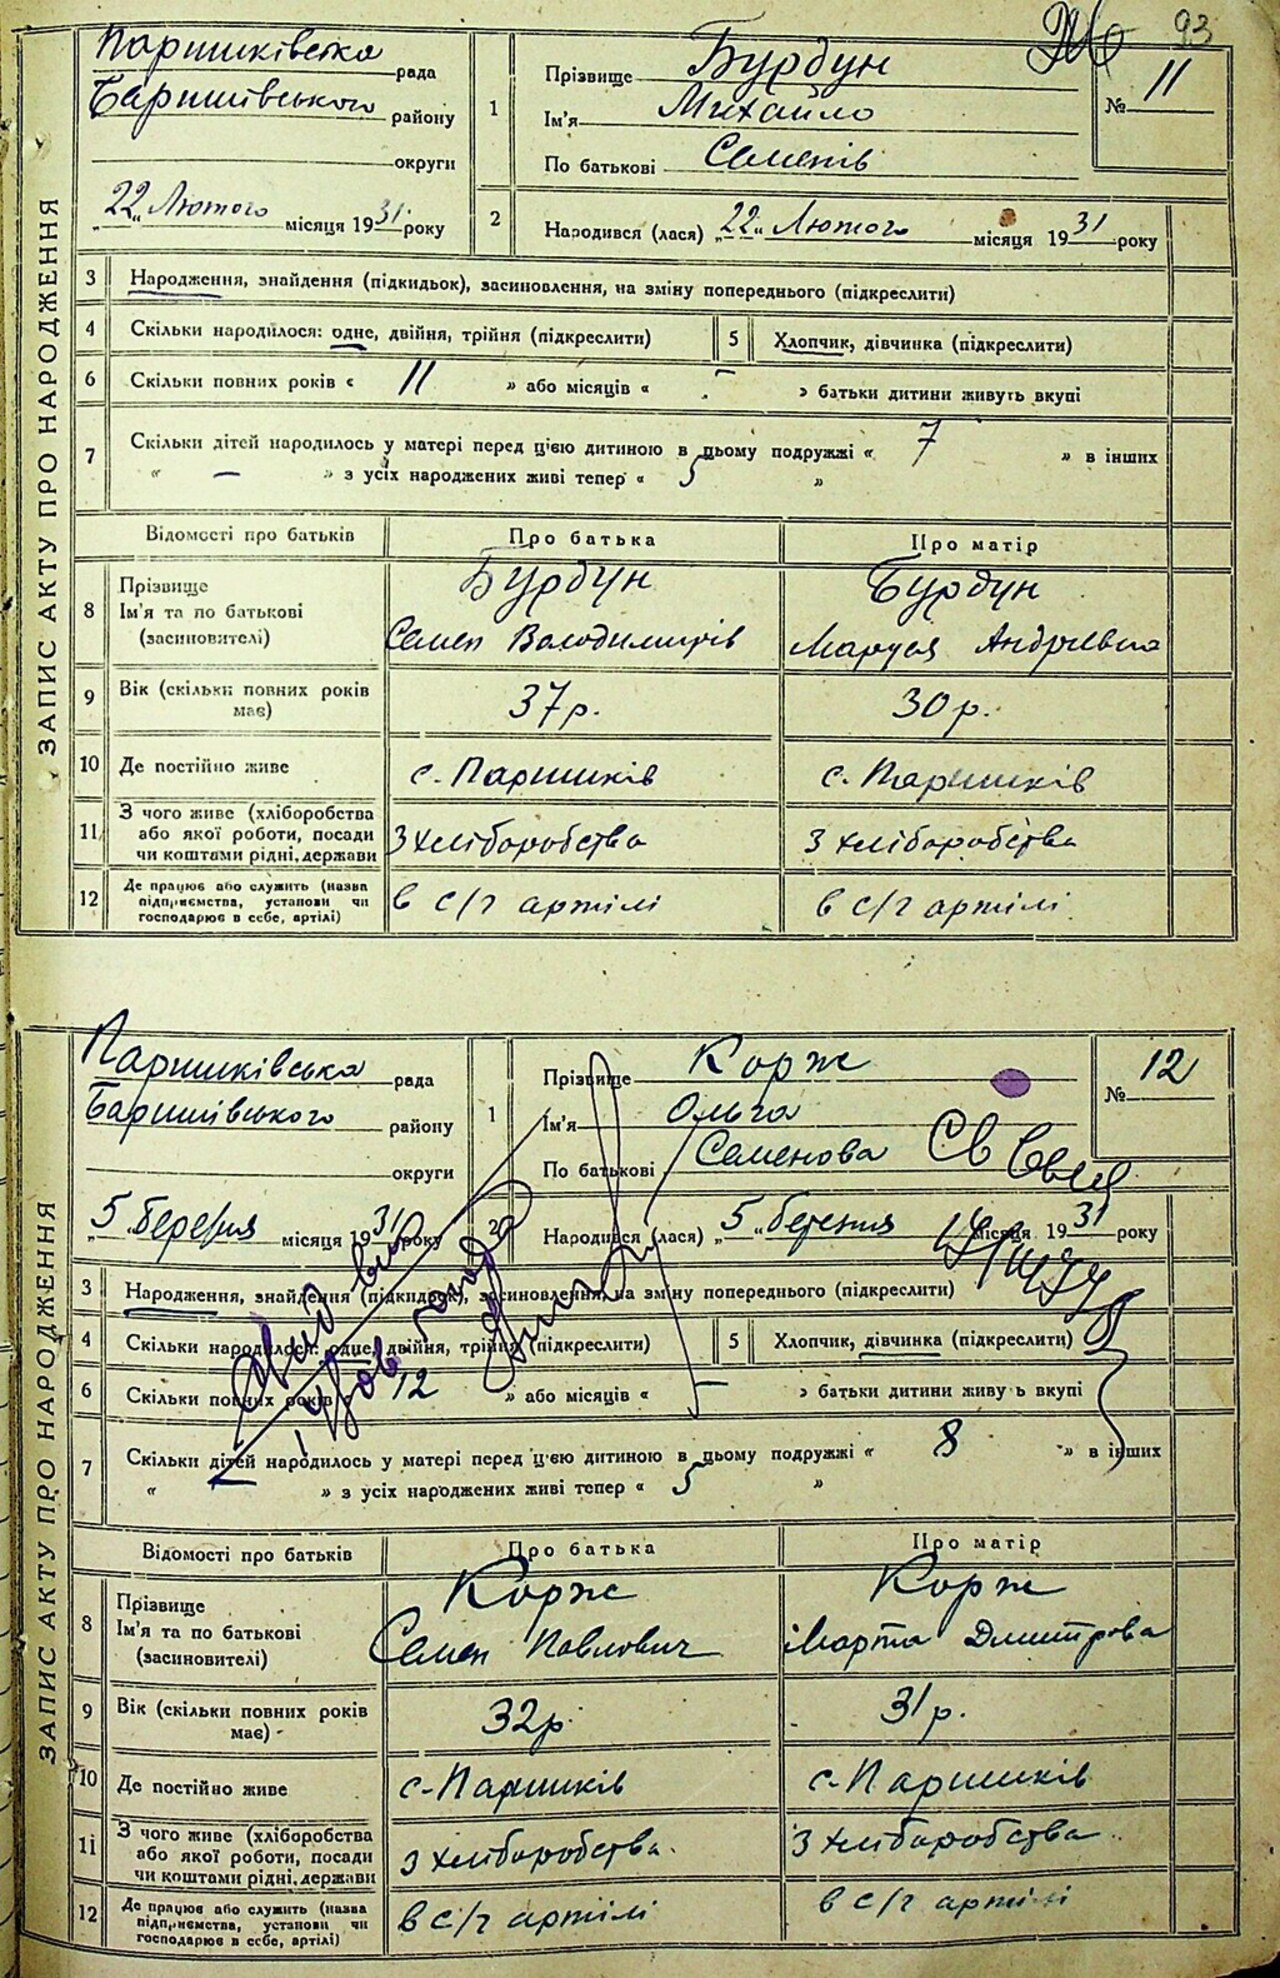 93
ЗАПИС АКТУ ПРО НАРОДЖЕННЯ
Паришківська рада
Баришівського району
округи
„22“ Лютого місяця 1931 року
1
Прізвище Бурдун
Ім'я Михайло
По батькові Семенів
№ 11
2 Народився (лася) „22“ Лютого місяця 1931 року
3 Народження, знайдення (підкидьок), засиновлення, на зміну попереднього (підкреслити)
4 Скільки народилося: одне, двійня, трійня (підкреслити) 5 Хлопчик, дівчинка (підкреслити)
6 Скільки повних років « 11 » або місяців « - » батьки дитини живуть вкупі
7 Скільки дітей народилось у матері перед цією дитиною в цьому подружжі « 7 » в інших
« — » з усіх народжених живі тепер « 5 »
Відомості про батьків Про батька Про матір
8 Прізвище
Ім'я та по батькові
(засиновителі)
Бурдун
Семен Володимирів
Бурдун
Маруся Андріевна
9 Вік (скільки повних років має) 37 р. 30 р.
10 Де постійно живе с. Паришків с. Паришків
11 З чого живе (хліборобства
або якої роботи, посади
чи коштами рідні, держави
З хліборобства З хліборобства
12 Де працює або служить (назва
підприємства, установи чи
господарює в себе, артілі)
в с/г артілі в с/г артілі
ЗАПИС АКТУ ПРО НАРОДЖЕННЯ
Паришківська рада
Баришівського району
округи
„5“ Березня місяця 1931 року
1
Прізвище Корж
Ім'я Ольга
По батькові Семенова
№ 12
2 Народився (лася) „5“ березня місяця 1931 року
3 Народження, знайдення (підкидьок), засиновлення, на зміну попереднього (підкреслити)
4 Скільки народилося: одне, двійня, трійня (підкреслити) 5 Хлопчик, дівчинка (підкреслити)
6 Скільки повних років « 12 » або місяців « — » батьки дитини живу ь вкупі
7 Скільки дітей народилось у матері перед цією дитиною в цьому подружжі « 8 » в інших
« » з усіх народжених живі тепер « 5 »
Відомості про батьків Про батька Про матір
8 Прізвище
Ім'я та по батькові
(засиновителі)
Корж
Семен Павлович
Корж
Марта Дмитрова
9 Вік (скільки повних років має) 32 р. 31 р.
10 Де постійно живе с. Паришків с. Паришків
11 З чого живе (хліборобства
або якої роботи, посади
чи коштами рідні, держави
З хліборобства З хліборобства
12 Де працює або служить (назва
підприємства, установи чи
господарює в себе, артілі)
в с/г артілі в с/г артілі